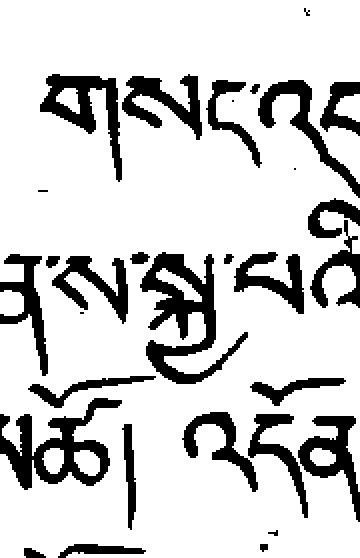 གསང་འད
ན་ས་སྐྱ་པའི
མཚོ། འདོན